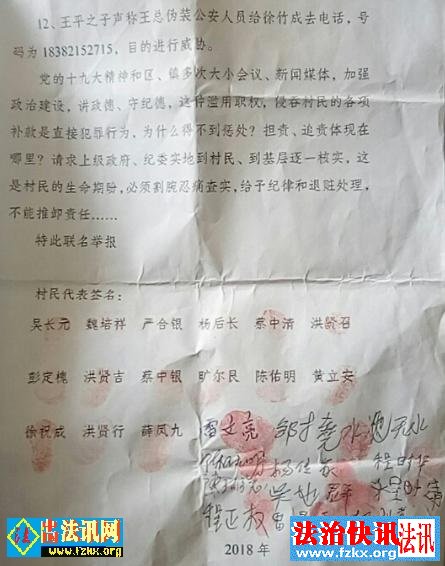 12、王平之子声称王总伪装公安人员给徐竹成去电话，号
码为 18382152715，目的进行威胁。
党的十九大精神和区、镇多次大小会议、新闻媒体，加强
政治建设，讲政德、守纪德，这种滥用职权，侵吞村民的各项
补款是直接犯罪行为，为什么得不到惩处？担责、追责体现在
哪里？请求上级政府、纪委实地到村民、到基层逐一核实，这
是村民的生命期盼，必须割腕忍痛查实，给于纪律和退赃处理，
不能推卸责任……
特此联名举报
村民代表签名：
吴长元 魏培祥 严合银 杨后长 蔡中清 洪贤召
彭定槐 洪贤吉 蔡中银 旷尔民 陈佑明 黄立安
徐祝成 洪贤行 薛凤九 雷文亮
程时华
程正权
2018 年
法治快讯
www.fzkx.org
出法讯网
www.fzkx.org
法讯